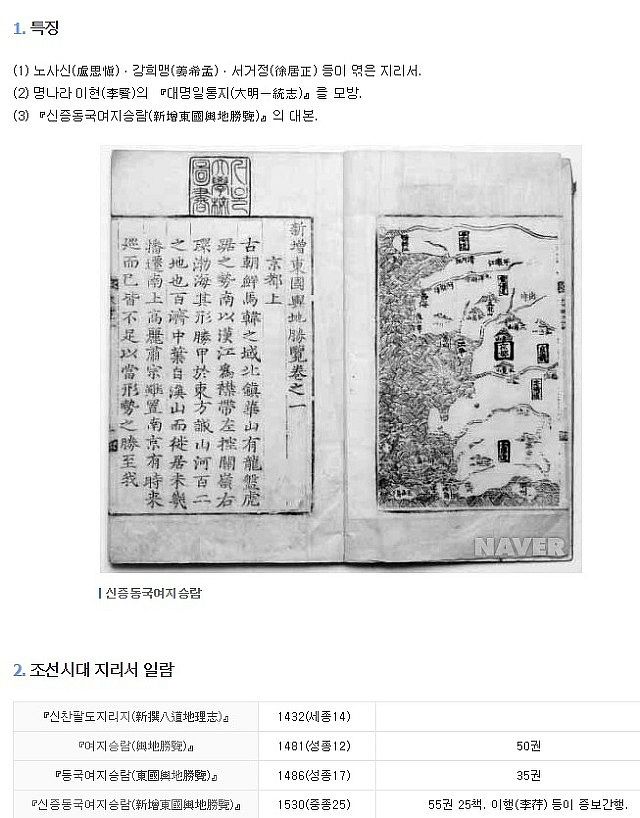 1. 특징
(1) 노사신(盧思愼) · 강희맹(姜希孟) · 서거정(徐居正) 등이 엮은 지리서.
(2) 명나라 이현(李賢)의 『대명일통지(大明一統志)』를 모방.
(3) 『신증동국여지승람(新增東國輿地勝覽)』의 대본.
新增東國輿地勝覽卷之一
京都上
古朝鮮馬韓之域北鎮華山有龍盤虎
踞之勢南以漢江為襟帶左控關嶺右
環渤海其形勝甲於東方誠山河百二
之地也百濟中葉自漢山而徙居未幾
播遷南上高麗肅宗雖置南京有時來
廵而已皆不足以當形勢之勝至我
NAVER
신증동국여지승람
2. 조선시대 지리서 일람
『신찬팔도지리지(新撰八道地理志)』 1432(세종14)
『여지승람(輿地勝覽)』 1481(성종12) 50권
『동국여지승람(東國輿地勝覽)』 1486(성종17) 35권
『신증동국여지승람(新增東國輿地勝覽)』 1530(중종25) 55권 25책. 이행(李荇) 등이 증보간행.